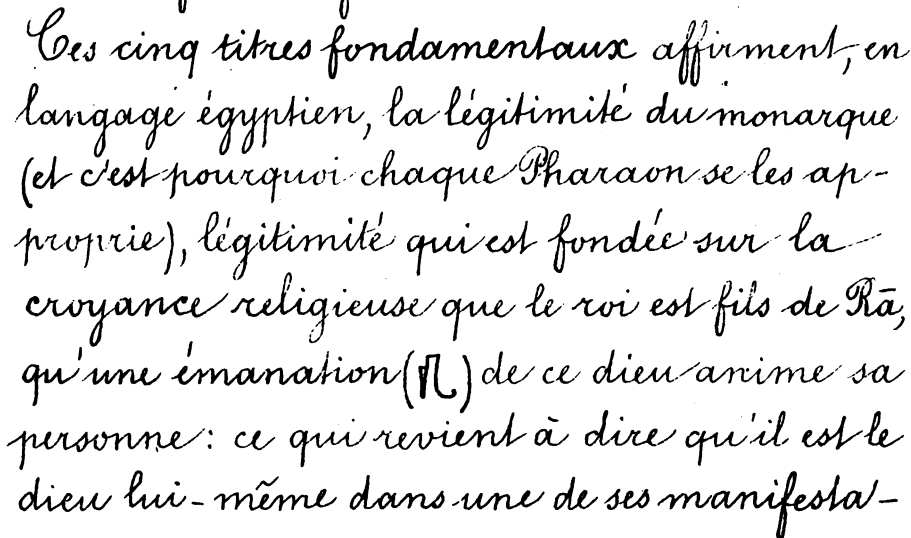 Ces cinq titres fondamentaux affirment, en
langage égyptien, la légitimité du monarque
(et c'est pourquoi chaque Pharaon se les ap-
proprie), légitimité qui est fondée sur la
croyance religieuse que le roi est fils de Rā,
qu'une émanation ( ) de ce dieu anime sa
personne : ce qui revient à dire qu'il est le
dieu lui-même dans une de ses manifesta-